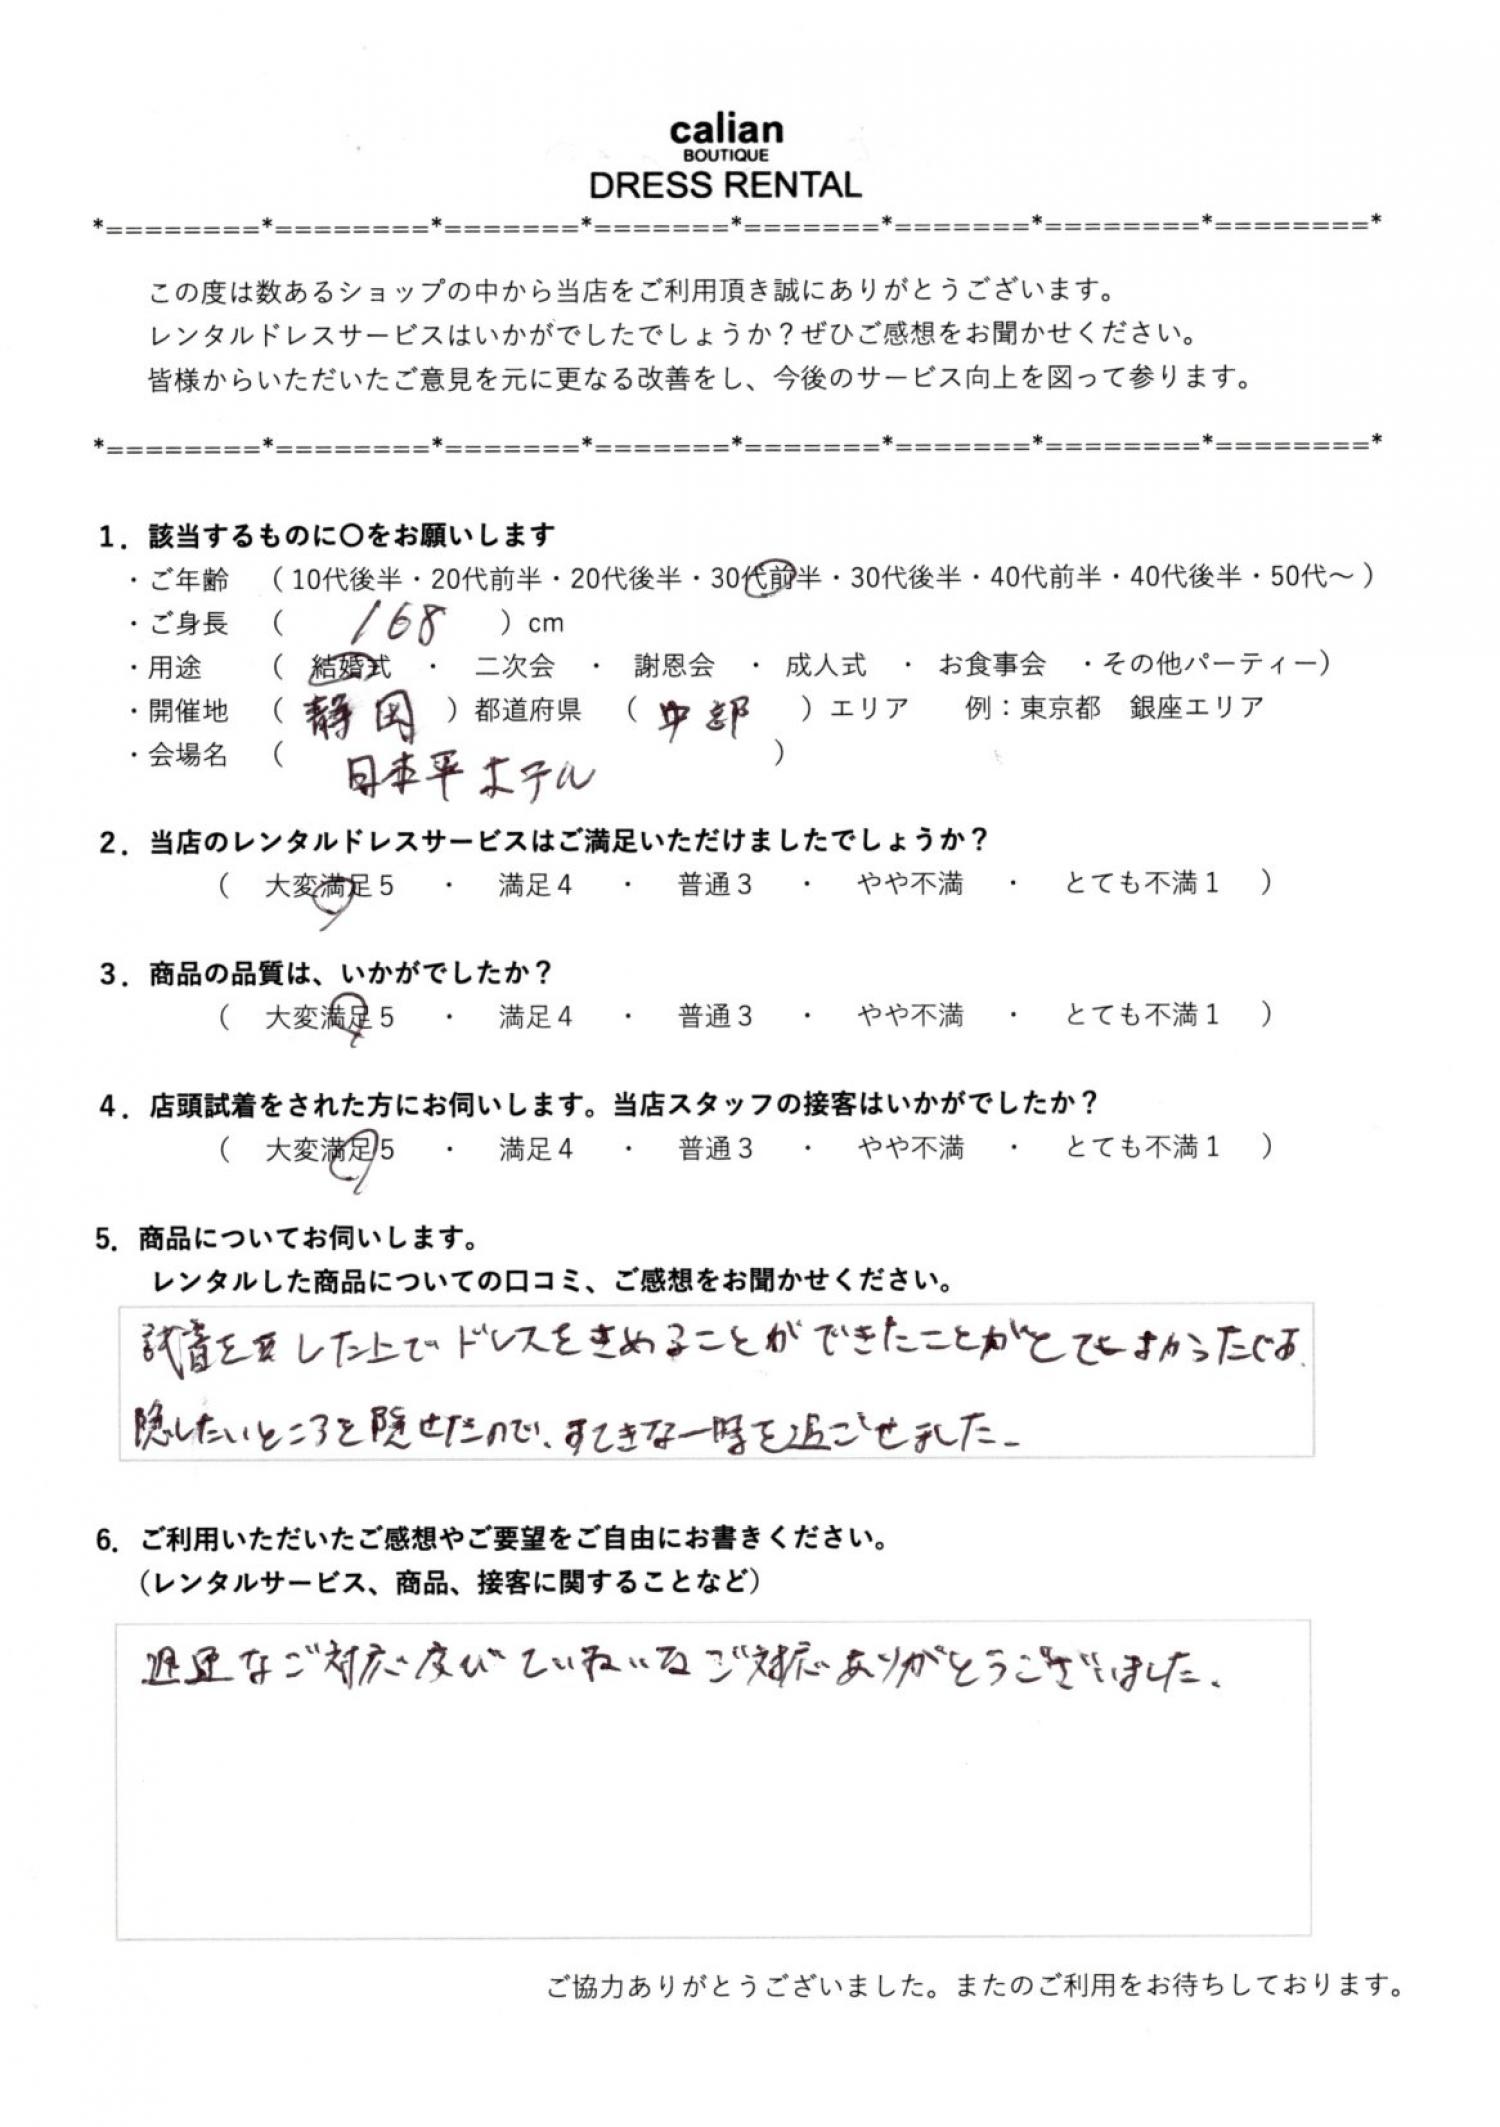 calian
BOUTIQUE
DRESS RENTAL
*========*========*=======*=======*=======*=======*========*========*
この度は数あるショップの中から当店をご利用頂き誠にありがとうございます。
レンタルドレスサービスはいかがでしたでしょうか？ぜひご感想をお聞かせください。
皆様からいただいたご意見を元に更なる改善をし、今後のサービス向上を図って参ります。
*========*========*=======*=======*=======*=======*========*========*
1．該当するものに〇をお願いします
・ご年齢 （ 10代後半・20代前半・20代後半・30代前半・30代後半・40代前半・40代後半・50代～ ）
・ご身長 （ 168 ）cm
・用途 （ 結婚式 ・ 二次会 ・ 謝恩会 ・ 成人式 ・ お食事会 ・その他パーティー）
・開催地 （ 静岡 ）都道府県 （ 中部 ）エリア 例：東京都 銀座エリア
・会場名 （ 日本平ホテル ）
2．当店のレンタルドレスサービスはご満足いただけましたでしょうか？
（ 大変満足5 ・ 満足4 ・ 普通3 ・ やや不満 ・ とても不満1 ）
3．商品の品質は、いかがでしたか？
（ 大変満足5 ・ 満足4 ・ 普通3 ・ やや不満 ・ とても不満1 ）
4．店頭試着をされた方にお伺いします。当店スタッフの接客はいかがでしたか？
（ 大変満足5 ・ 満足4 ・ 普通3 ・ やや不満 ・ とても不満1 ）
5．商品についてお伺いします。
レンタルした商品についての口コミ、ご感想をお聞かせください。
試着をした上でドレスをきめることができたことがとてもよかったです、
隠したいところを隠せたので、すてきな一時を過ごせました。
6．ご利用いただいたご感想やご要望をご自由にお書きください。
（レンタルサービス、商品、接客に関することなど）
迅速なご対応及びていねいなご対応ありがとうございました。
ご協力ありがとうございました。またのご利用をお待ちしております。